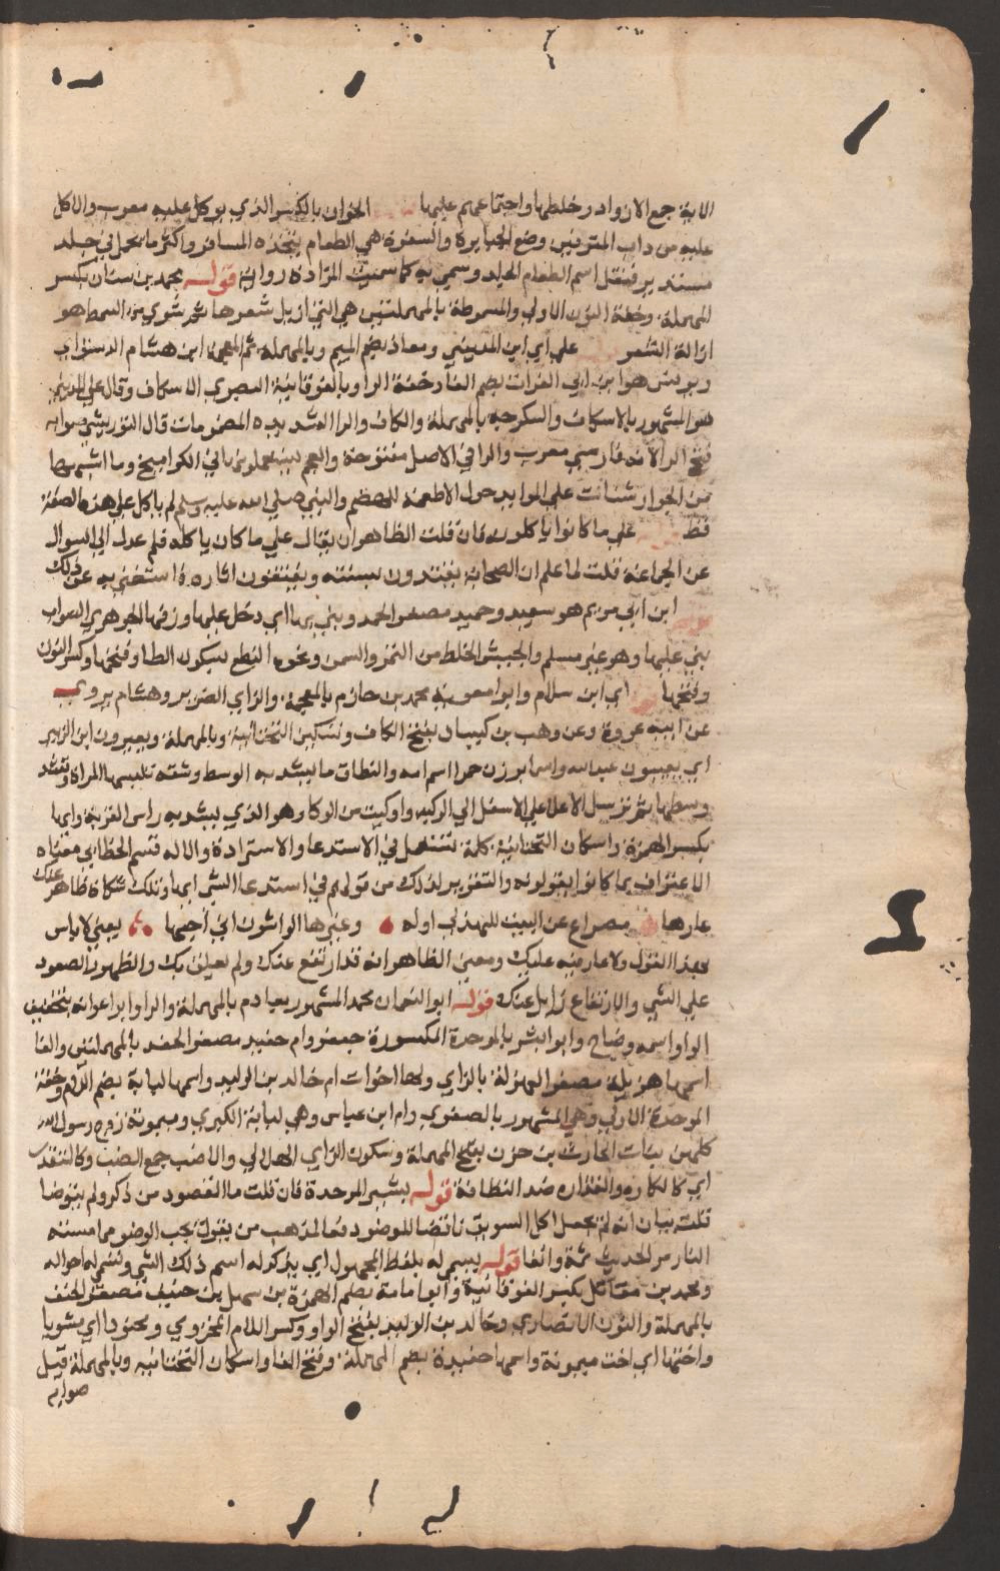 الاية جمع الازواد وخلطها واجتماعهم عليها الخوان بالكسر الذي يوكل عليه معرب والاكل
عليه من داب المترفين وضع الجبابرة والسفرة هي الطعام يتخذه المسافر واكثر ما يحمل في جلد
مستدير فنقل اسم الطعام الجلد وسمي به كما سميت المزادة رواية قوله محمد بن سنان بكسر
المهملة وخفة النون الاولي والمسموطة بالمهملتين هي التي ازيل شعرها ثم شوي من السمط هو
ازالة الشعر علي اي ابن المديني ومعاذ بضم الميم وبالمهملة ثم المعجمة ابن هشام الدستواي
ويونس هو ابن ابي الفرات بضم الفا وخفة الرا وبالفوقانية البصري الاسكاف وقال علي المديني
هو المشهور بالاسكاف والسكرجه بالمهملة والكاف والرا المشددة المضمومات قال التوربشتي صوابه
فتح الرا لانه فارسي معرب والرا في الاصل مفتوحة والعجم يستعملونها في الكوامخ وما اشبهها
من الجوارشنات علي الموايد حول الاطعمة للهضم والنبي صلي الله عليه وسلم لم ياكل علي هذه الصفة
قط علي ما كانوا ياكلون فان قلت الظاهر ان يقال علي ما كان ياكله فلم عدل الي السوال
عن الجماعة قلت لما علم ان الصحابة يقتدون بسنته ويقتفون اثاره استغني به عن ذلك
ابن ابي مريم هو سعيد وحميد مصغر الحمد ويبني بها اي دخل عليها وزفها الجوهري الصواب
بني عليها وهو غير مسلم والحيس الخلط من التمر والسمن ونحوه النطع بسكون الطا وفتحها وكسر النون
وفتحها اي ابن سلام وابو معوية محمد بن خازم بالمعجمة والزاي الضرير وهشام يروي
عن ابيه عروة وعن وهب بن كيسان بفتح الكاف وتسكين التحتانية وبالمهملة ويعيرون ابن الزبير
اي يعيبون عبد الله واسما بوزن حمرا اسم امه والنطاق ما يشد به الوسط وشقة تلبسها المراة وتشد
وسطها ثم ترسل الاعلا علي الاسفل الي الركبة واوكيت من الوكا وهو الذي يشد به راس القربة وايها
بكسر الهمزة واسكان التحتانية كلمة تستعمل في الاستدعا والاستزادة والاله قسم الخطابي معناه
الاعتراف بما كانوا يقولونه والتقرير لذلك من قولهم في استدعا الشي ايها وتلك شكاة ظاهر عنك
عارها مصراع عن البيت للهذلي اوله وعيرها الواشون اني احبها يعني لا باس
بهذا القول ولا عار منه عليك ومعني الظاهر انه قد ارتفع عنك ولم يعلق بك والظهور الصعود
علي الشي والارتفاع زايل عنك قوله ابو النعمان محمد المشهور بعارم بالمهملة والرا وابو عوانه بتخفيف
الواو اسمه وضاح وابو البشر بالموحدة المكسورة جعفر وام حفيد مصغر الحفد بالمهملتين والفا
اسمها هزيلة مصغر الهزلة بالزاي ولها اخوات ام خالد بن الوليد واسمها لبابة بضم اللام وخفة
الموحدة الاولي وهي المشهور بالصغري وام ابن عباس وهي لبابة الكبري وميمونة زوج رسول الله
كلهن بنات الحارث بن حزن بفتح المهملة وسكون الزاي الهلالي والاضب جمع الضب وكالمتقذر
اي كالكاره والقذاره ضد النظافة قوله بشير الموحدة فان قلت ما المقصود من ذكر ولم يتوضا
قلت بيان انه لم يجعل اكل السويق ناقضا للوضو دفعا لمذهب من يقول يجب الوضو مما مسته
النار مر الحديث ثمة وانفا قوله يسمي له بلفظ المجهول اي يذكر له اسم ذلك الشي وتسمي له احواله
ومحمد بن مقاتل بكسر الفوقانية وابو امامة بضم الهمزة بن سهل بن حنيف مصغر الحنف
بالمهملة والنون الانصاري وخالد بن الوليد بفتح الواو وكسر اللام المخزومي ومحنوذا اي مشويا
واختها اي اخت ميمونة واسمها حفيدة بضم المهملة وفتح الفا واسكان التحتانيه وبالمهملة قيل
صوابه